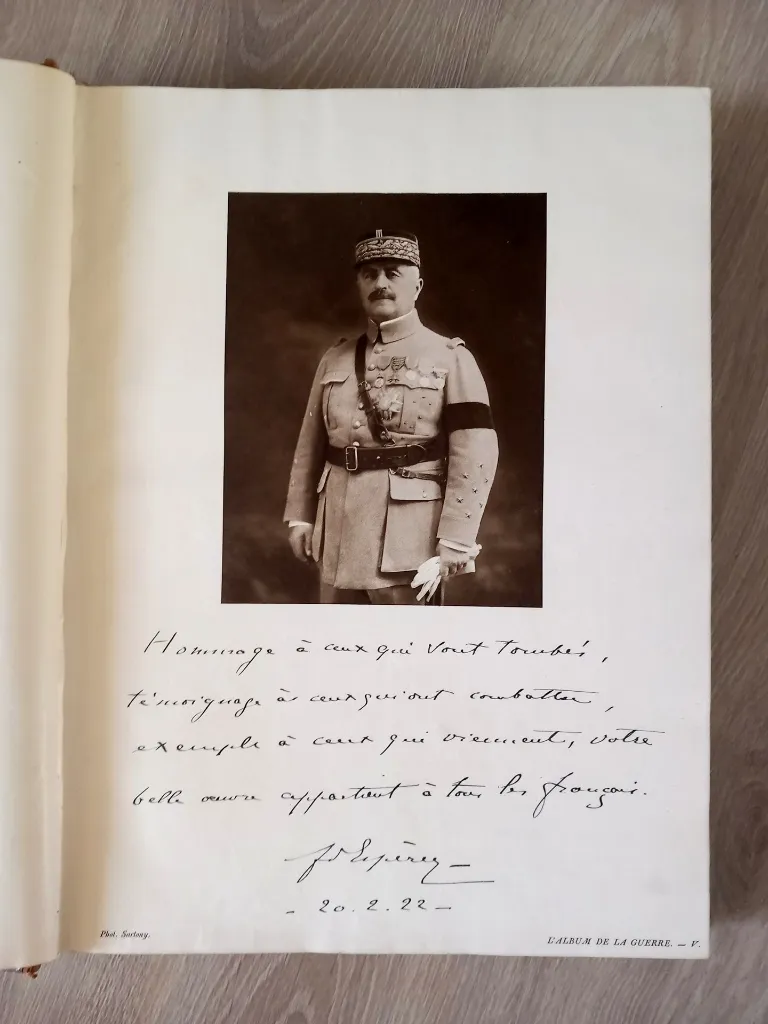 Hommage à ceux qui sont tombés,
témoignage à ceux qui ont combattu,
exemple à ceux qui viennent, votre
belle œuvre appartient à tous les français.
f d'Espérey
- 20.2.22 -
Phot. Sartony.
L'ALBUM DE LA GUERRE. — V.